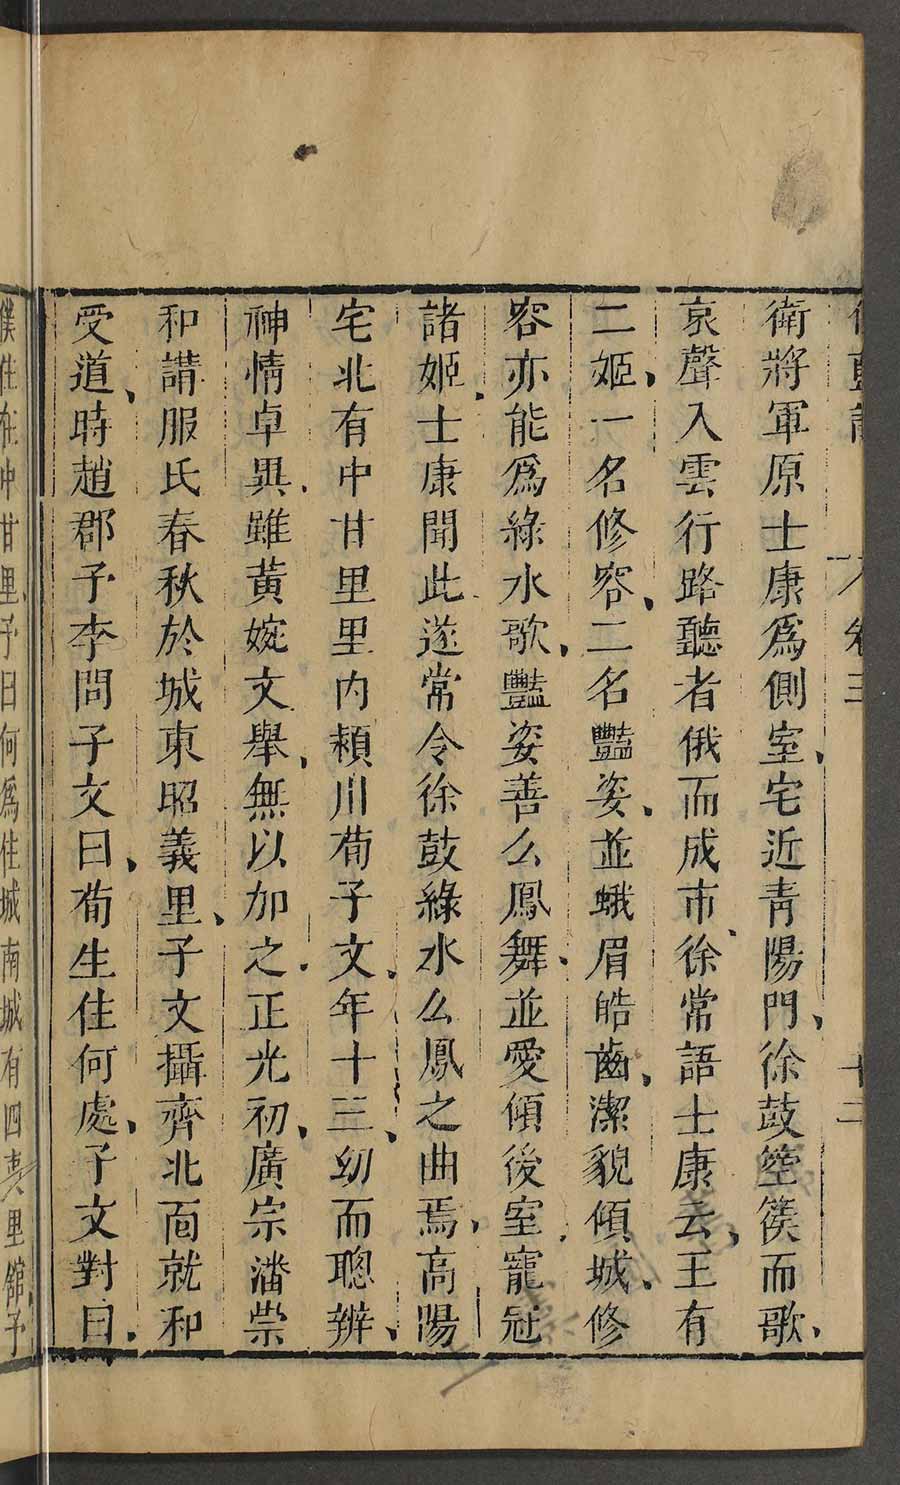 卷三 十二
衛將軍原士康爲側室宅近青陽門徐鼓箜篌而歌
哀聲入雲行路聽者俄而成市徐常語士康云王有
二姬一名修容二名豔姿並蛾眉皓齒潔貌傾城修
容亦能爲綠水歌豔姿善么鳳舞並愛傾後室寵冠
諸姬士康聞此遂常令徐鼓綠水么鳳之曲焉高陽
宅北有中甘里里内頴川荀子文年十三幼而聰辨
神情卓異雖黃婉文舉無以加之正光初廣宗潘崇
和講服氏春秋於城東昭義里子文攝齊北面就和
受道時趙郡子李問子文曰荀生住何處子文對曰
僕住在中甘里子曰何爲住城南城有四夷里館子